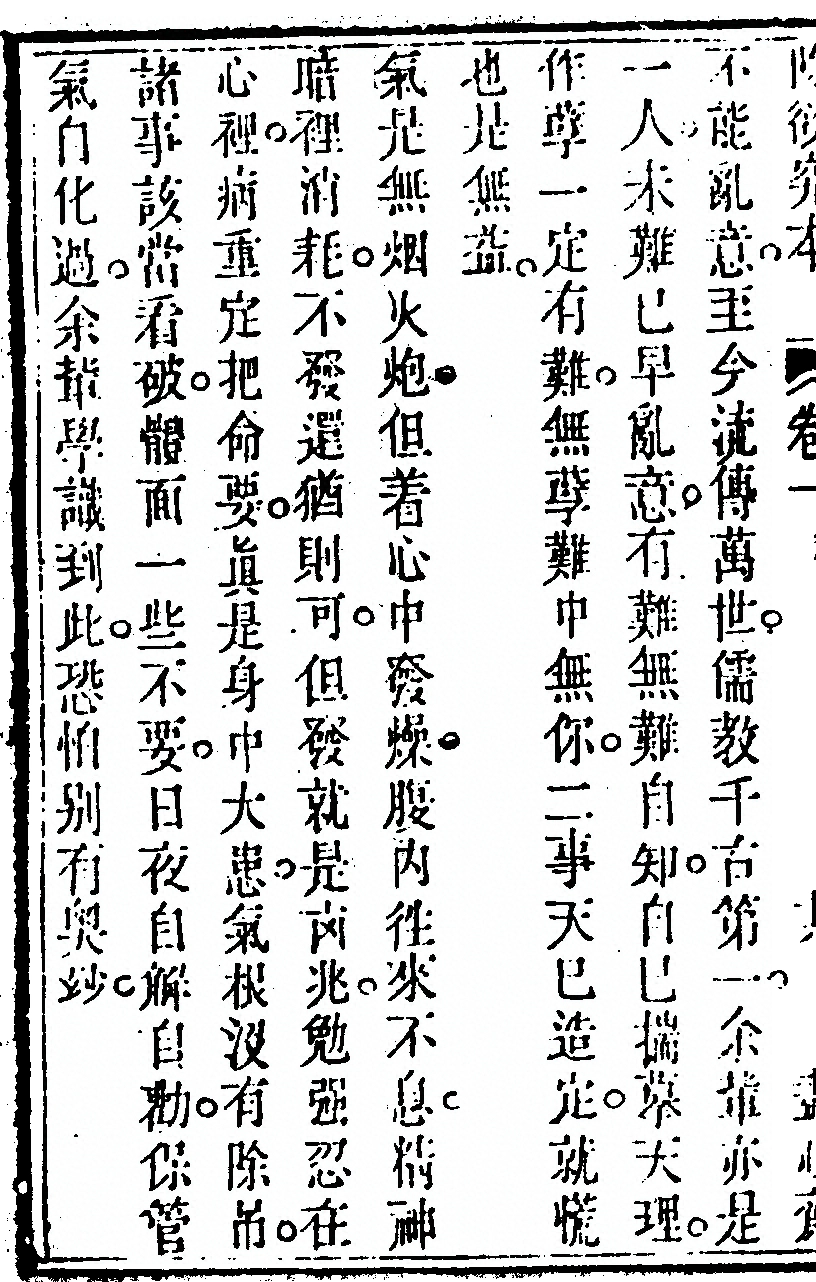 卷一
不能亂意。至今流傳萬世。儒教千古第一。余輩亦是
一人。未難已早亂意。有難無難自知。自已揣摹天理。
作孽一定有難。無孽難中無你。二事天已造定。就慌
也是無益。
氣是無烟火炮。但着心中發燥。腹內徃來不息。精神
暗裡消耗。不發還猶則可。但發就是凶兆。勉强忍在
心裡。病重定把命要。眞是身中大患。氣根沒有除吊。
諸事該當看破。體面一些不要。日夜自解自勸。保管
氣自化過。余輩學識到此。恐怕别有奥妙。